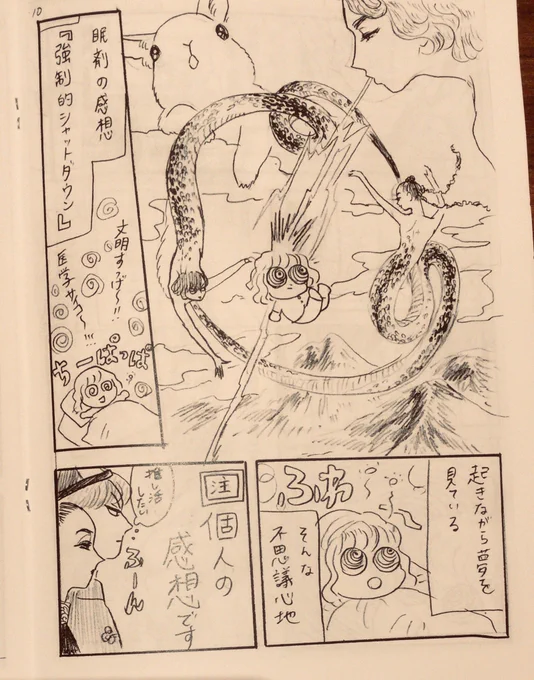 10
眠剤の感想
『強制的シャットダウン』
文明すげ〜!!
医学サイコ〜!!!
ちーぱっぱ
起きながら夢を
見ている
ふわ
そんな
不思議心地
注 個人の
感想です
推し活
したい
ふーん